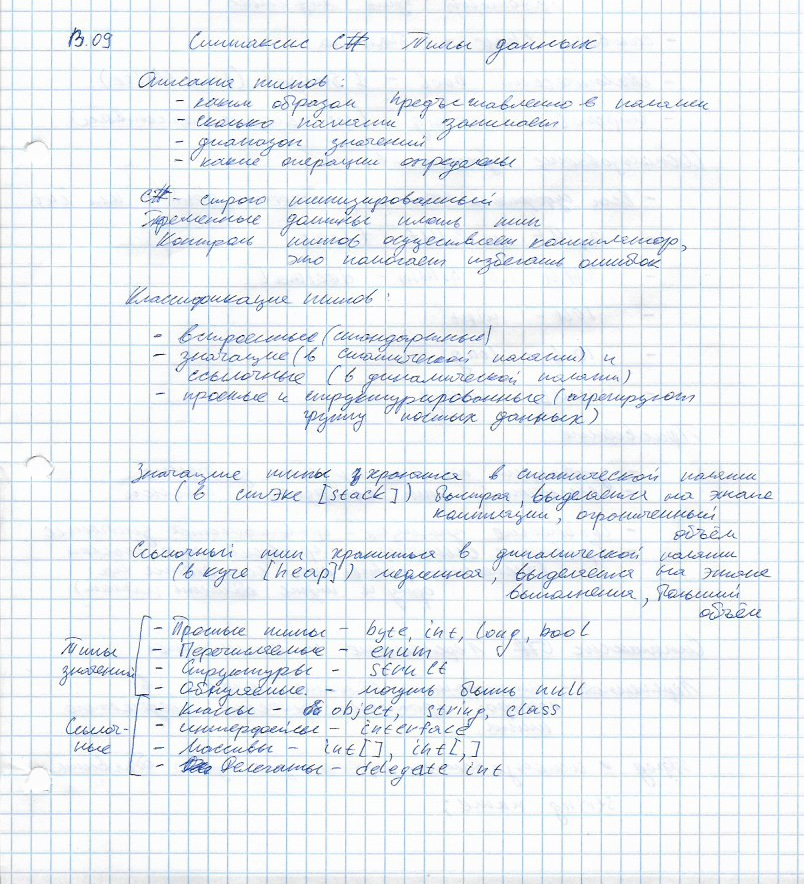 В.09 Синтаксис C# Типы данных
Описание типов:
- каким образом представленно в памяти
- сколько памяти занимает
- диапазон значений
- какие операции определены
C# - строго типизированный
Переменные должны иметь тип
Контроль типов осуществляет компилятор,
это помогает избегать ошибок
Классификация типов:
- встроенные (стандартные)
- значащие (в статической памяти) и
ссылочные (в динамической памяти)
- простые и структурированные (агрегируют
группу данных)
Значащие типы хранятся в статической памяти
(в стэке [stack]) быстрая, выделяется на этапе
компиляции, ограниченный
объём
Ссылочный тип храниться в динамической памяти
(в куче [heap]) медленная, выделяется на этапе
выполнения, больший
объём
Типы значений
- Простые типы - byte, int, long, bool
- Перечисляемые - enum
- Структуры - struct
- Обнуляемые - могут быть null
Ссылоч-
ные
- Классы - object, string, class
- интерфейсы - interface
- Массивы - int[], int[,]
- Делегаты - delegate int